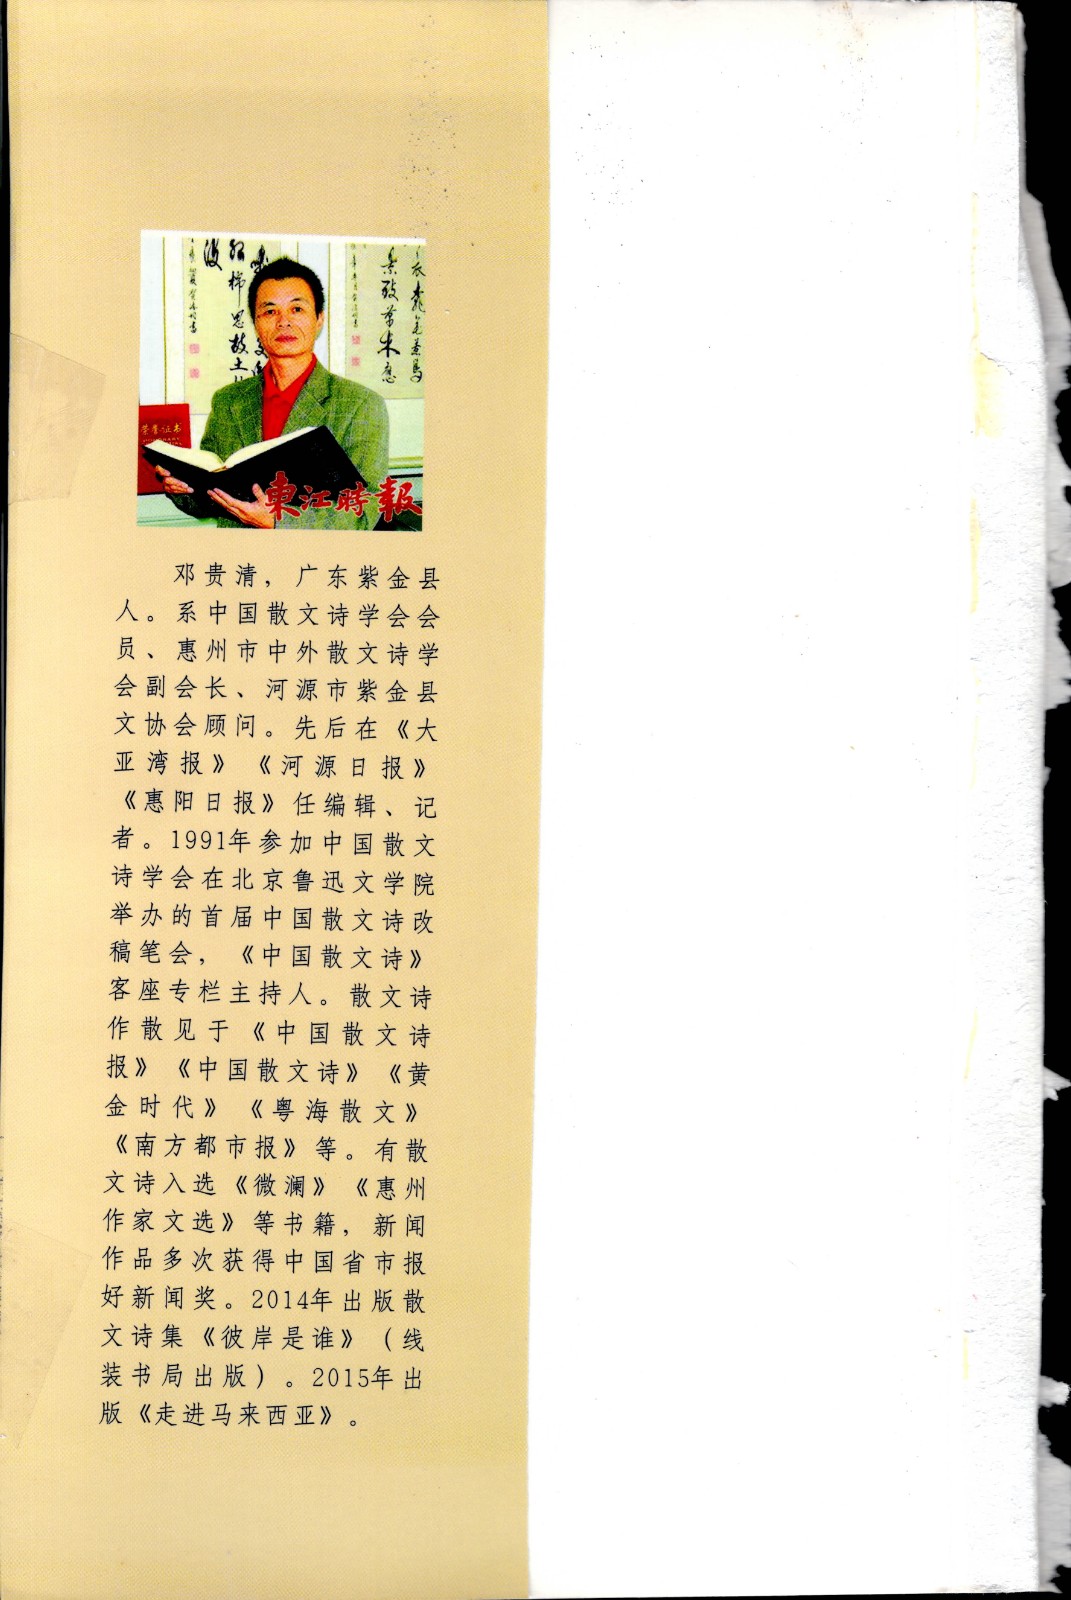 荣誉证书
東江時報
邓贵清，广东紫金县
人。系中国散文诗学会会
员、惠州市中外散文诗学
会副会长、河源市紫金县
文协会顾问。先后在《大
亚湾报》《河源日报》
《惠阳日报》任编辑、记
者。1991年参加中国散文
诗学会在北京鲁迅文学院
举办的首届中国散文诗改
稿笔会，《中国散文诗》
客座专栏主持人。散文诗
作散见于《中国散文诗
报》《中国散文诗》《黄
金时代》《粤海散文》
《南方都市报》等。有散
文诗入选《微澜》《惠州
作家文选》等书籍，新闻
作品多次获得中国省市报
好新闻奖。2014年出版散
文诗集《彼岸是谁》（线
装书局出版）。2015年出
版《走进马来西亚》。